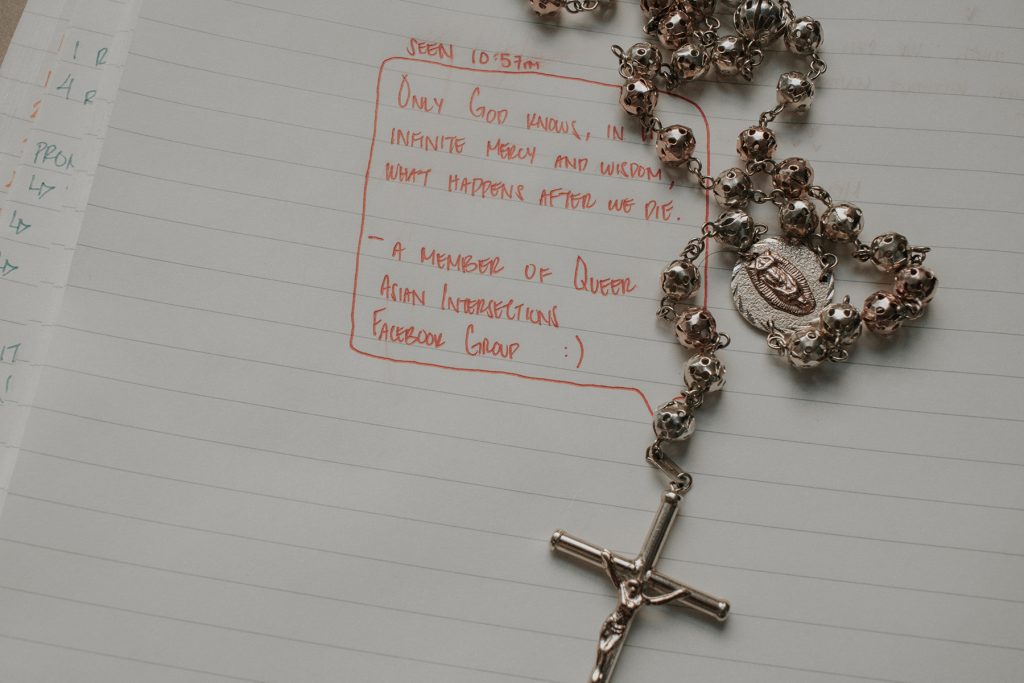 1 R
4 R
SEEN 10:57PM
ONLY GOD KNOWS, IN
INFINITE MERCY AND WISDOM,
WHAT HAPPENS AFTER WE DIE.
– A MEMBER OF QUEER
ASIAN INTERSECTIONS
FACEBOOK GROUP :)